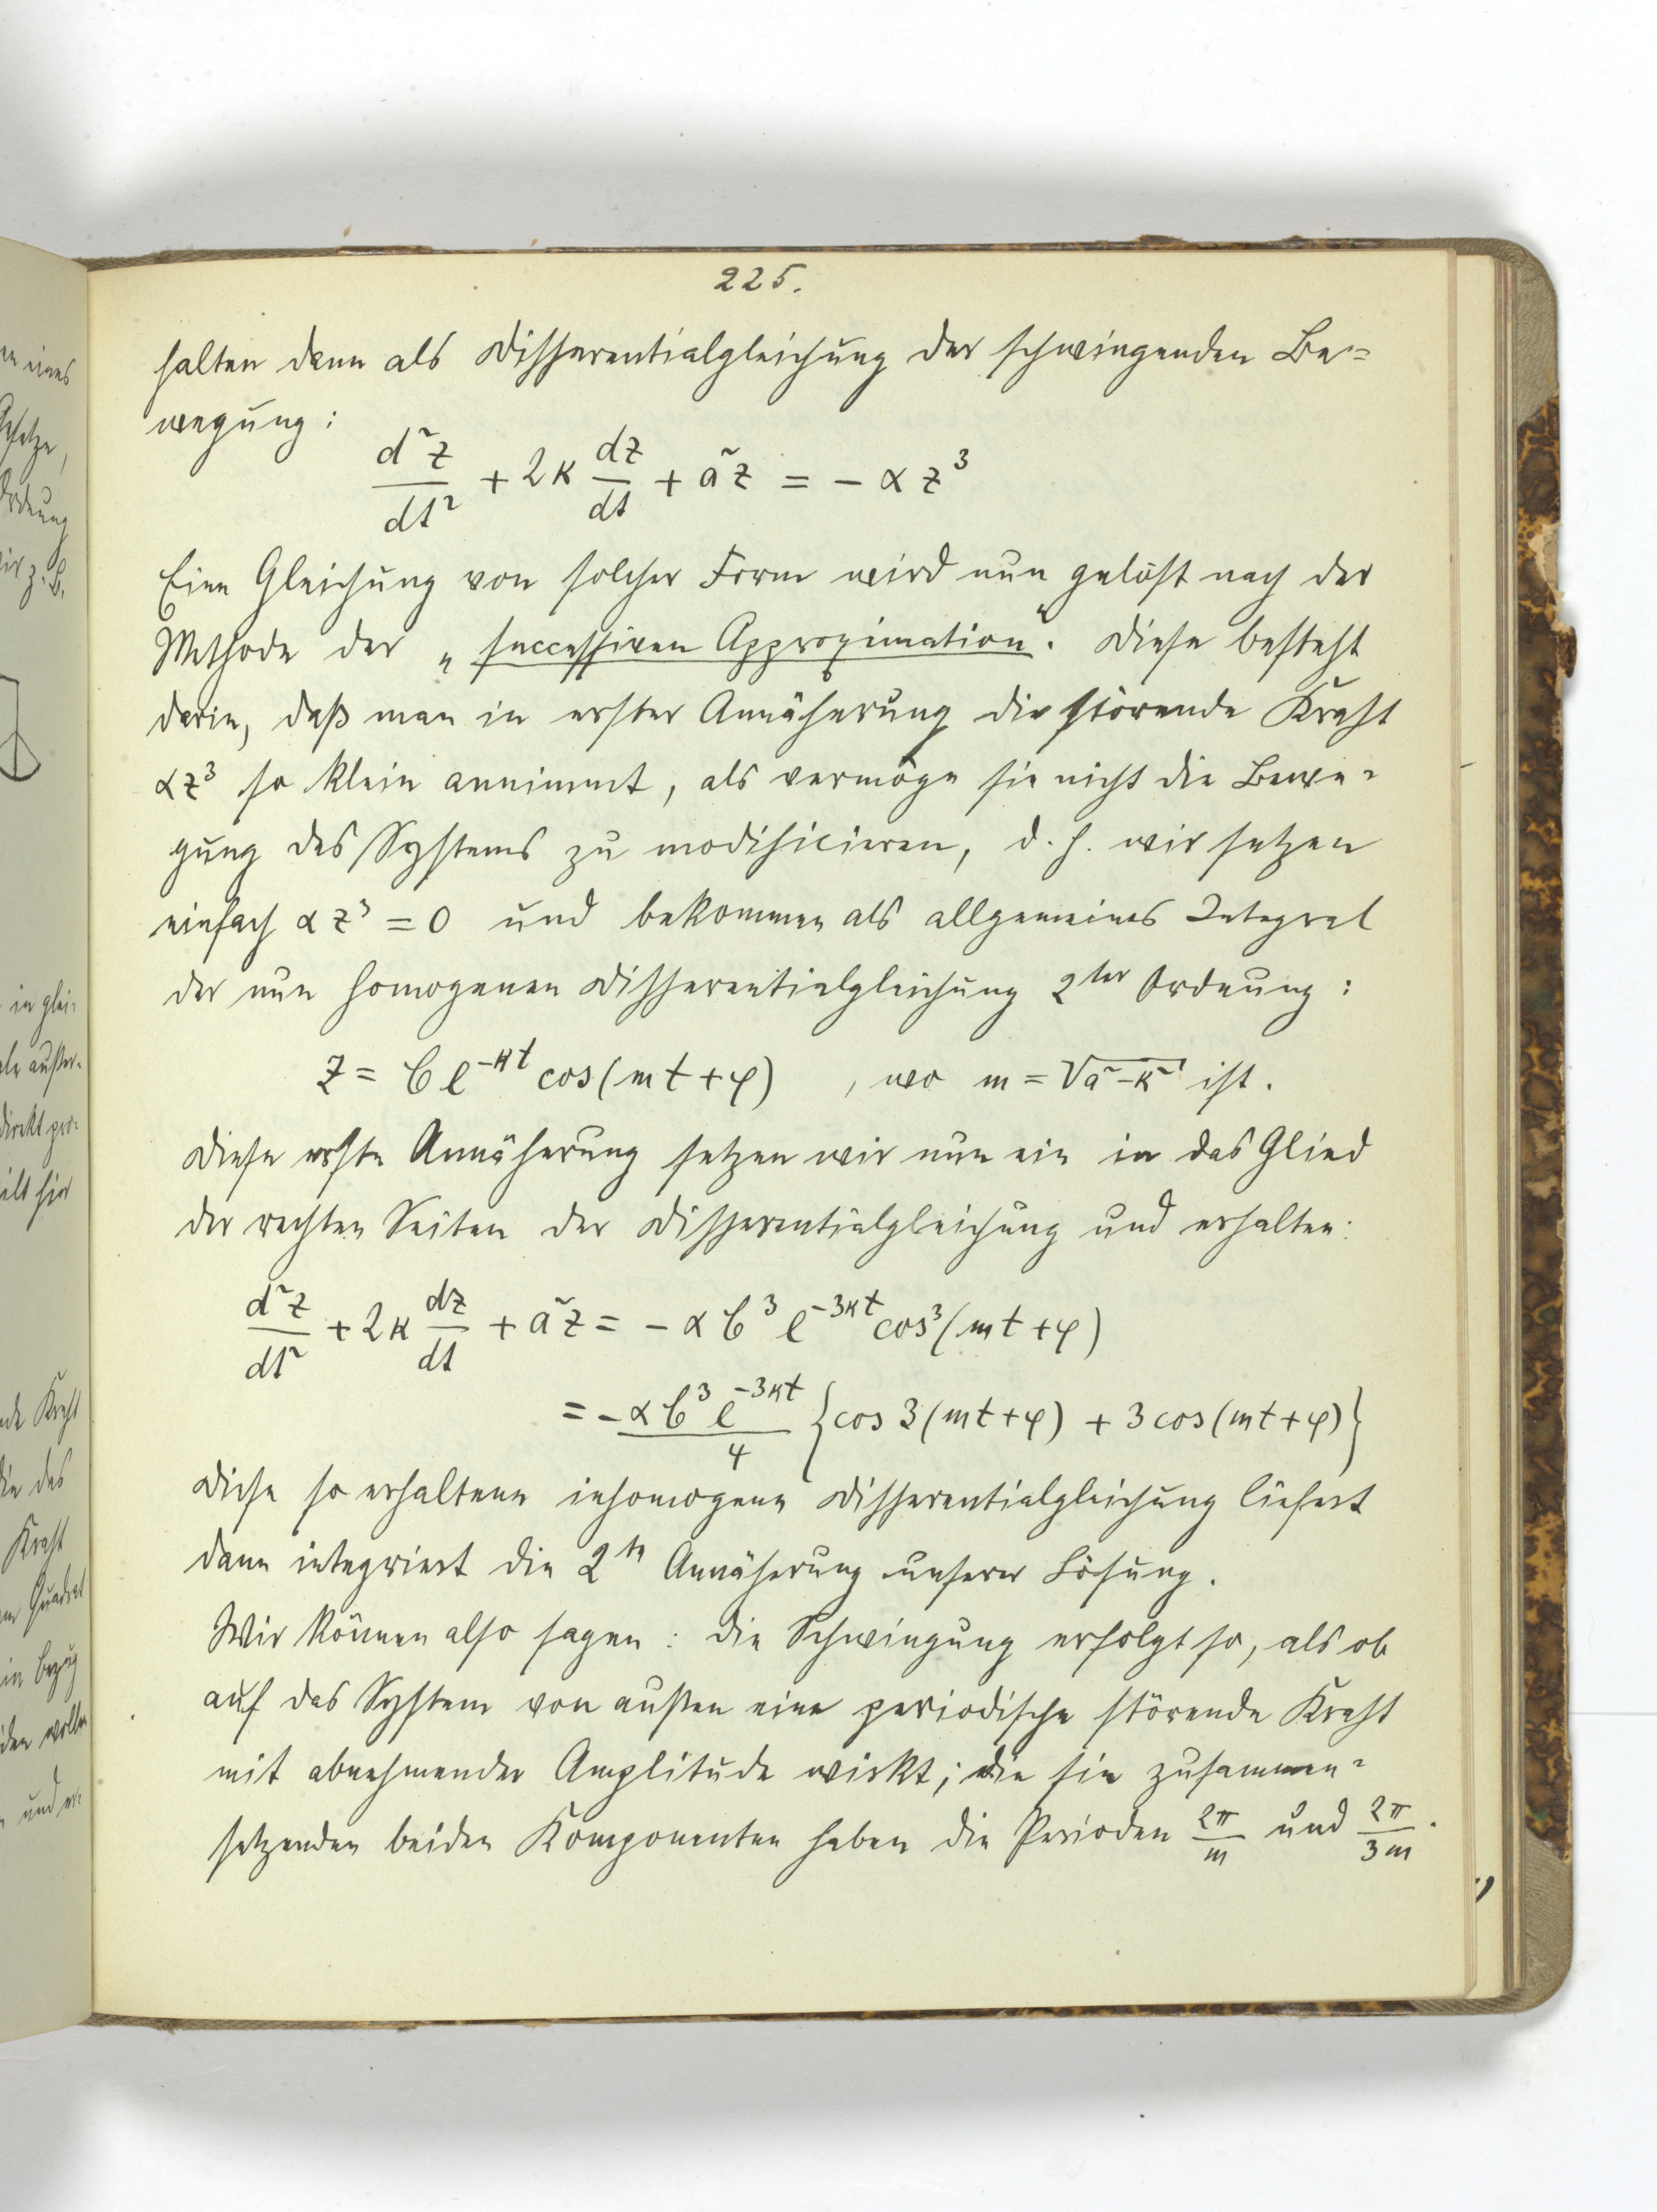 225.
halten dann als Differentialgleichung der schwingenden Be=
wegung:
d²z/dt² + 2κ dz/dt + a²z = - αz³
Eine Gleichung von solcher Form wird nun gelöst nach der
Methode der „successiven Approximation“. Diese besteht
darin, daß man in erster Annäherung die störende Kraft
αz³ so klein annimmt, als vermöge sie nicht die Bewe=
gung des Systems zu modificieren, d. h. wir setzen
einfach αz³ = 0 und bekommen als allgemeines Integral
der nun homogenen Differentialgleichung 2ter Ordnung:
z = C e^{-κt} cos(mt+φ) , wo m = √(a²-κ²) ist.
Diese erste Annäherung setzen wir nun ein in das Glied
der rechten Seiten der Differentialgleichung und erhalten:
d²z/dt² + 2κ dz/dt + a²z = - αC³ e^{-3κt} cos³(mt+φ)
= - αC³ e^{-3κt}/4 {cos 3(mt+φ) + 3 cos(mt+φ)}
Diese so erhaltene inhomogene Differentialgleichung liefert
dann integriert die 2te Annäherung unserer Lösung.
Wir können also sagen: die Schwingung erfolgt so, als ob
auf das System von außen eine periodische störende Kraft
mit abnehmender Amplitude wirkt; die sie zusammen=
setzenden beiden Komponenten haben die Perioden 2π/m und 2π/3m.